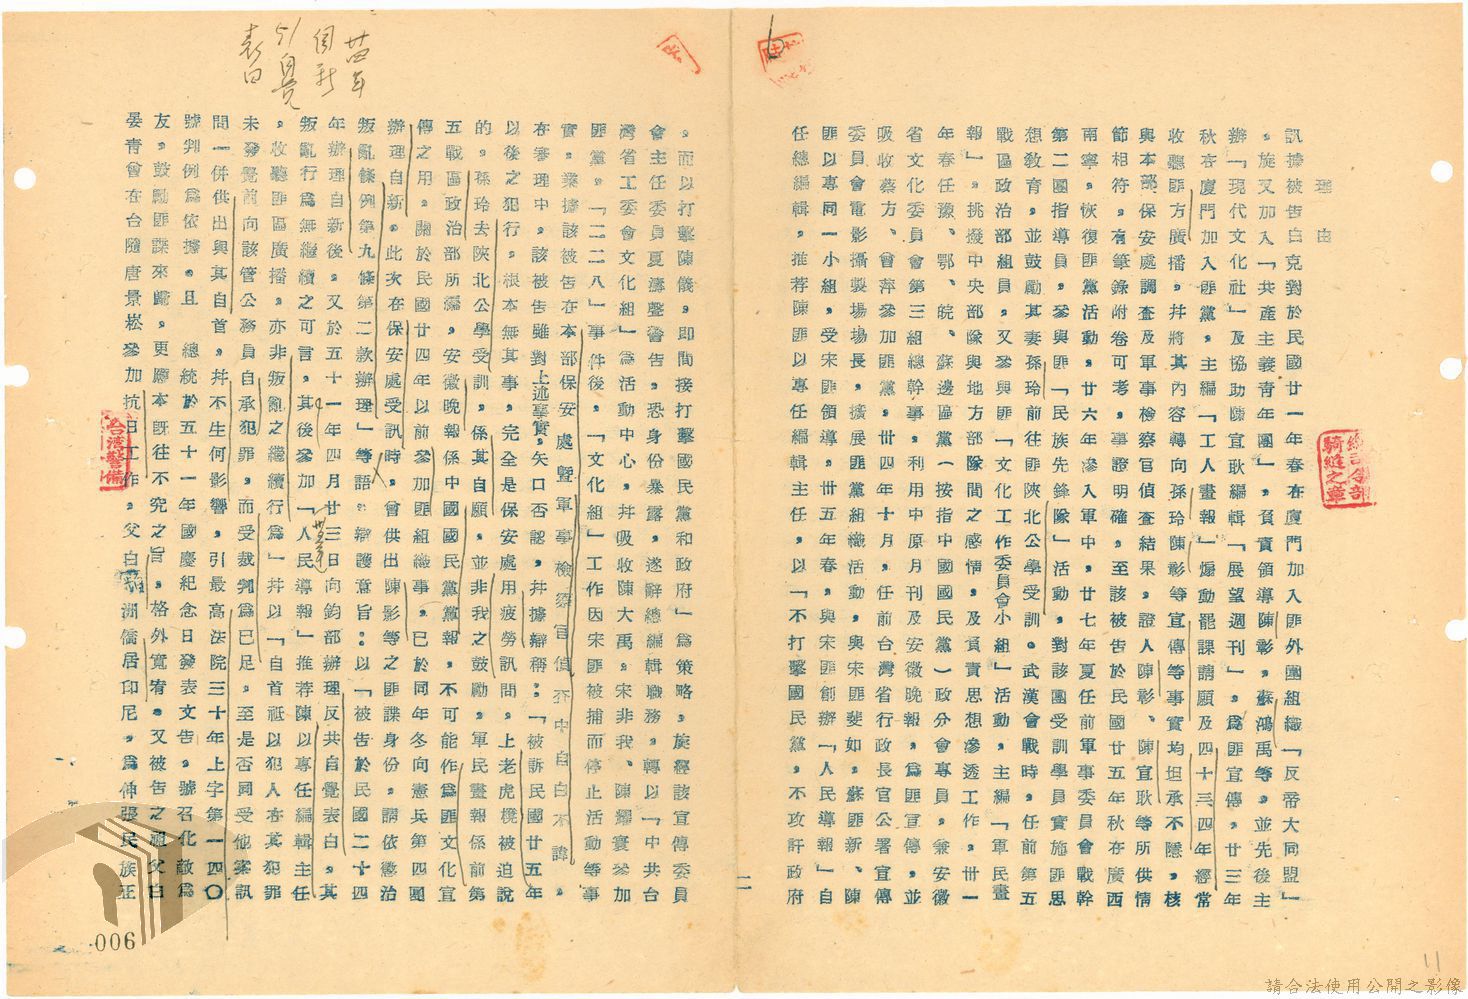 理由
訊據被告白克對於民國廿一年春在廈門加入匪外團組織「反帝大同盟」
。旋又加入「共產主義青年團」。負責領導陳彰，蘇鴻禹等。並先後主
辦「現代文化社」及協助陳宣耿編輯「展望週刊」。為匪宣傳。廿三年
秋在廈門加入匪黨。主編「工人畫報」煽動罷課請願及四十三、四年經常
收聽匪方廣播。并將其內容轉向孫玲陳彰等宣傳等事實均坦承不隱。核
與本部保安處調查及軍事檢察官偵查結果。證人陳彰、陳宣耿等所供情
節相符。有筆錄附卷可考。事證明確。至該被告於民國廿五年秋在廣西
南寧。恢復匪黨活動。廿六年滲入軍中。廿七年夏任前軍事委員會戰幹
第二團指導員。參與匪「民族先鋒隊」活動。對該團受訓學員實施匪思
想教育。並鼓勵其妻孫玲前往匪陝北公學受訓。武漢會戰時。任前第五
戰區政治部組員。又參與匪「文化工作委員會小組」活動。主編「軍民畫
報」。挑撥中央部隊與地方部隊間之感情。及負責思想滲透工作。卅一
年春任豫、鄂、皖、蘇邊區黨（按指中國國民黨）政分會專員。兼安徽
省文化委員會第三組總幹事。利用中原月刊及安徽晚報。為匪宣傳。並
吸收蔡方、曾萍參加匪黨。卅四年十月。任前台灣省行政長官公署宣傳
委員會電影攝製場場長。擴展匪黨組織活動。與宋匪斐如。蘇匪新、陳
匪以專同一小組。受宋匪領導。卅五年春。與宋匪創辦「人民導報」自
任總編輯。推荐陳匪以專任編輯主任。以「不打擊國民黨。不攻訐政府
二
。而以打擊陳儀。即間接打擊國民黨和政府」為策略。旋經該宣傳委員
會主任委員夏濤聲警告。恐身份暴露。遂辭總編輯職務。轉以「中共台
灣省工委會文化組」為活動中心。并吸收陳大禹。宋非我、陳耀寰參加
匪黨。「二二八」事件後。「文化組」工作因宋匪被捕而停止活動等事
實。業據該被告在本部保安處暨軍事檢察官偵查中自白不諱。
在審理中。該被告雖對上述事實。矢口否認。并據辯稱：「被訴民國廿五年
以後之犯行。根本無其事。完全是保安處用疲勞訊問。上老虎櫈被迫說
的。孫玲去陝北公學受訓。係其自願。並非我之鼓勵。軍民畫報係前第
五戰區政治部所編。安徽晚報係中國國民黨黨報。不可能作為匪文化宣
傳之用。關於民國廿四年以前參加匪組織事。已於同年冬向憲兵第四團
辦理自新。此次在保安處受訊時。曾供出陳影等之匪諜身份。請依懲治
叛亂條例第九條第二款辦理」等語。辯護意旨：以「被告於民國二十四
年辦理自新後。又於五十一年四月廿三日向鈞部辦理反共自覺表白。其
叛亂行為無繼續之可言。其後參加「人民導報」推荐陳以專任編輯主任
。收聽匪區廣播。亦非叛亂之繼續行為」并以「自首祗以犯人在其犯罪
未發覺前向該管公務員自承犯罪。而受裁判為已足。至是否同受他案訊
問一併供出與其自首。并不生何影響。引最高法院三十年上字第一四〇
號判例為依據。且　總統於五十一年國慶紀念日發表文告。號召化敵為
友。鼓勵匪諜來歸。更應本既往不究之旨。格外寬宥。又被告之祖父白
晏青曾在台隨唐景崧參加抗日工作。父白菊洲僑居印尼。為伸張民族正
廿四年
自新
51自覺
表白
台湾警備
騎縫之章
006
11
請合法使用公開之影像